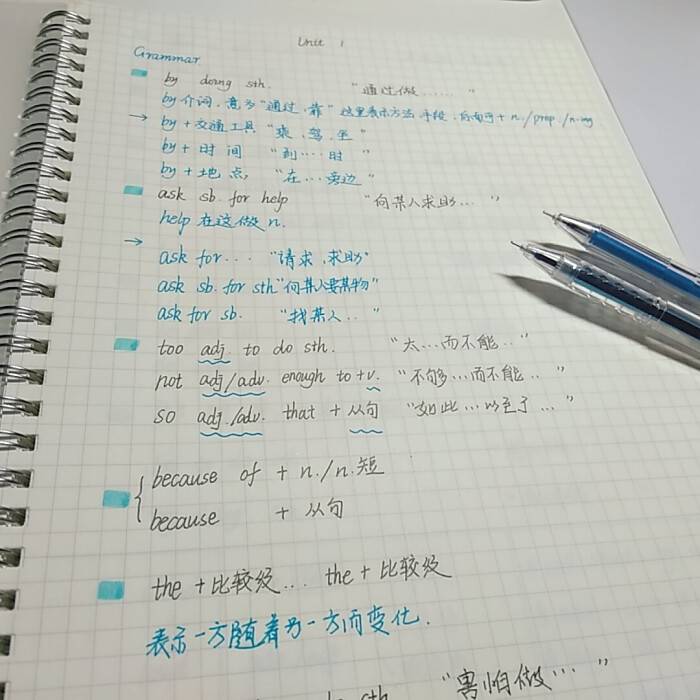 Unit 1
Grammar
by doing sth. "通过做……"
by 介词，意为"通过，靠"这里表示方法、手段，后面可+ n./prop./v-ing
→ by + 交通工具 "乘、驾、坐"
by + 时间 "到…时"
by + 地点, "在…旁边"
ask sb. for help "向某人求助…"
help 在这做 n.
→ ask for… "请求，求助"
ask sb. for sth "向某人要某物"
ask for sb. "找某人.."
too adj. to do sth. "太…而不能.."
not adj/adv. enough to+v. "不够…而不能.."
so adj./adv. that + 从句 "如此…以至于…"
because of + n./n.短
because + 从句
the +比较级… the +比较级
表示一方随着另一方而变化.
sth "害怕做…"